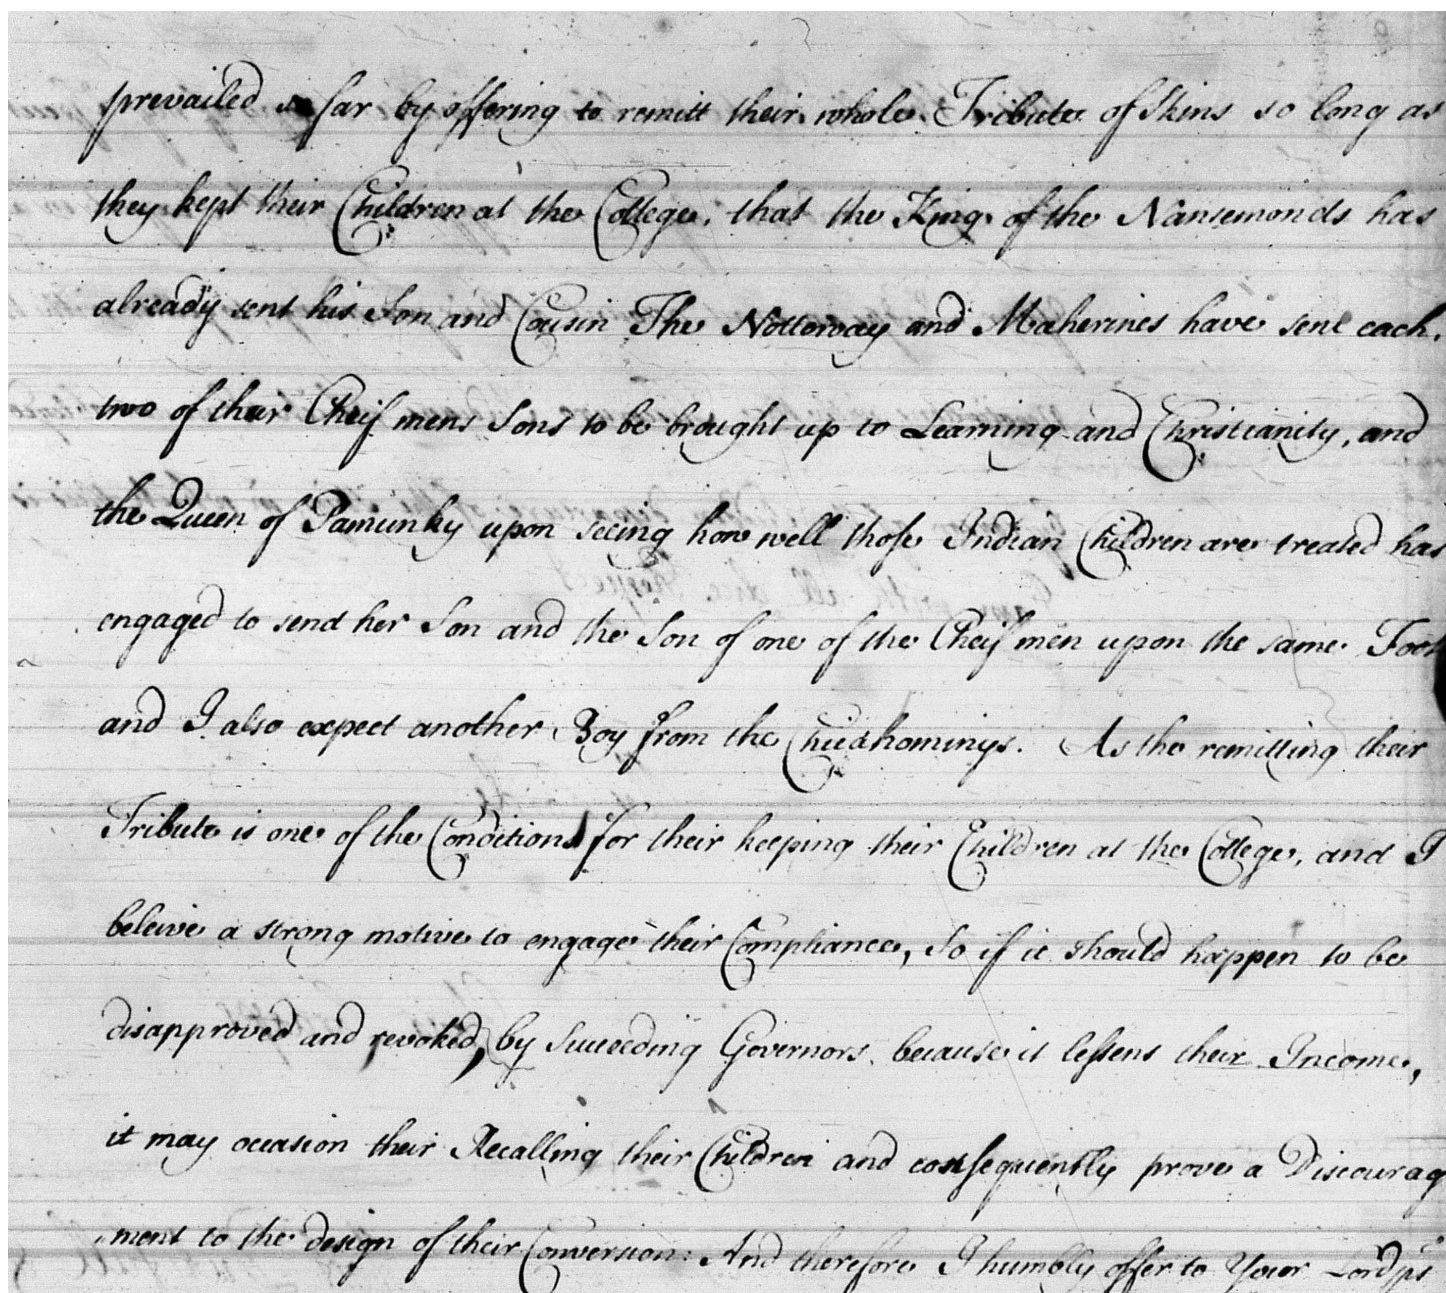 prevailed so far by offering to remitt their whole Tribute of Skins so long as
they kept their Children at the College, that the King of the Nansemonds has
already sent his Son and Cousin The Nottoway and Maherines have sent each
two of their Cheif mens Sons to be brought up to Learning and Christianity, and
the Queen of Pamunky upon seeing how well those Indian Children are treated has
engaged to send her Son and the Son of one of the Cheif men upon the same Foot
and I also expect another Boy from the Chicahominys. As the remitting their
Tribute is one of the Conditions for their keeping their Children at the College, and I
beleive a strong motive to engage their Compliance, So if it should happen to be
disapproved and revoked, by Succeeding Governors, because it lessens their Income,
it may occasion their Recalling their Children and consequently prove a Discourag
ment to the design of their Conversion: And therefore I humbly offer to Your Lordps